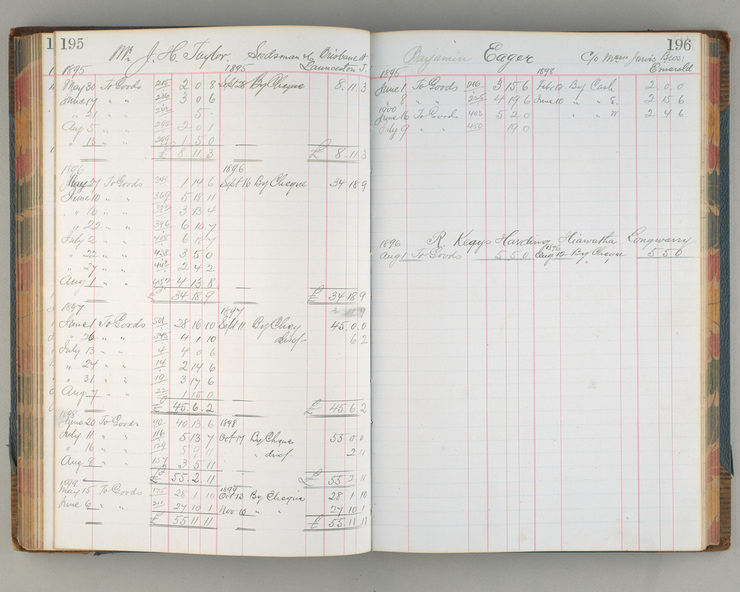 195
Mr. J. H. Taylor Seedsman &c Brisbane St
Launceston T.
1895 1895
May 30 To Goods 2 0 8 By Cheque 8. 11. 3
June 17 " " 3 0 6
" 21 " " 5
Aug 5 " " 2 0 1
" 13 " " 1. 5. 0
£ 8. 11. 3 £ 8. 11. 3
1896 1896
May 27 To Goods 1 14 6 Sept 16 By Cheque 34 18 9
June 10 " " 369 5 18 11
" 16 " " 3 13 4
" 22 " " 396 6 10 7
July 2 " " 6 18 7
" 22 " " 3 5 0
" 27 " " 2 4 2
Aug 1 " " 4 13 8
£ 34 18 9 £ 34 18 9
1897 1897
June 1 To Goods 501 28 16 10 Sept 11 By Cheq 45 0 0
" 26 " " 4 1 10 disct 6 2
July 13 " " 4 4 0 6
" 24 " " 14 2 14 6
" 31 " " 19 3 17 6
Aug 7 " " 1 15 0
£ 45. 6. 2 £ 45. 6. 2
1898 1898
June 20 To Goods 40 13 6
July 11 " " 116 5 13 7 Oct 17 By Chque 55 0 0
" 16 " " 5 9 11 " disct 2 11
Aug 8 " " 157 3 5 11
£ 55. 2. 11 £ 55 2 11
1899 1899
May 15 To Goods 175 28 1 10 Oct 13 By Cheque 28 1 10
June 6 " " 211 27 10 1 Nov 10 " " 27 10 1
£ 55. 11. 11 £ 55. 11. 11
196
Benjamin Eager C/o Messrs Jarvis Bros
Emerald
1895 1898
June 1 To Goods 216 3 15 6 Feby 12 By Cash 2. 0. 0
" 8 " " 225 4 19 6 June 10 " " 2 15 6
1900
June 16 To Goods 402 5 2 0 " " 2 4 6
July 9 " " 19 0
1896 R. Keggs Harding Hiawatha Longwarry
1896
Aug 1 To Goods 5 5 0 Aug 12 By Cheque 5 5 0